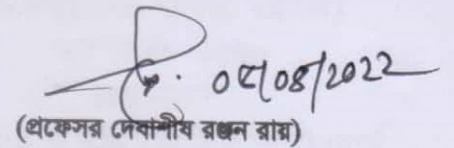 0৫/08/2022
(প্রফেসর দেবাশীষ রঞ্জন রায়)